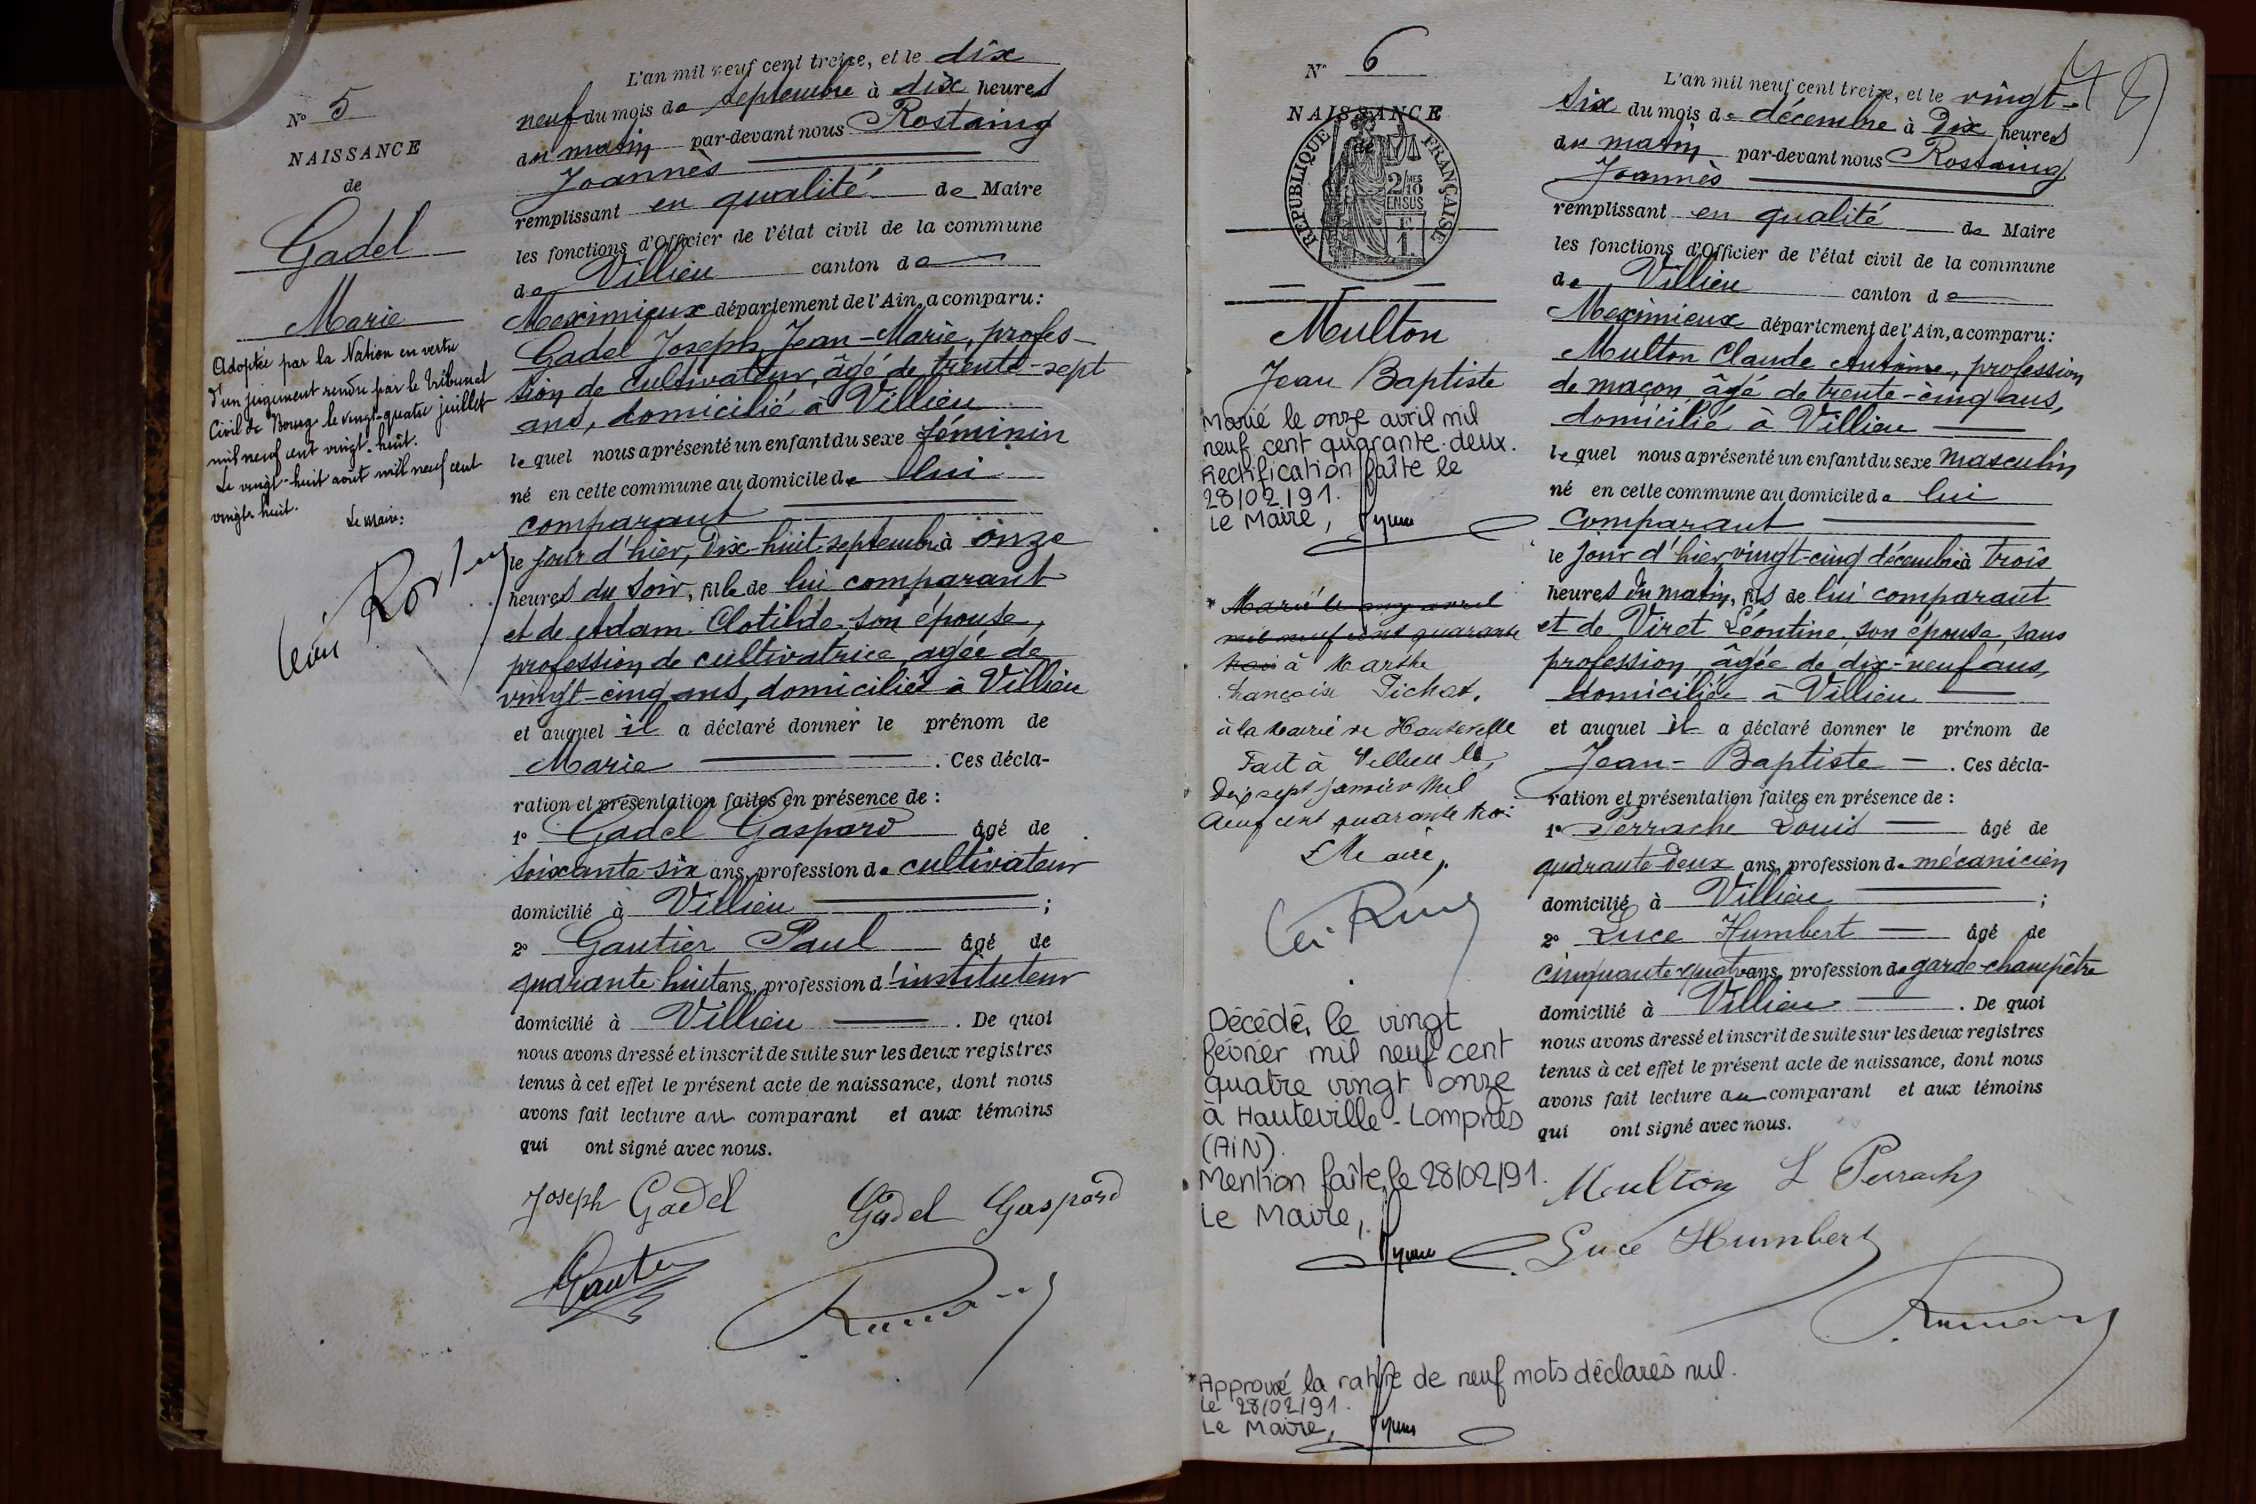 N° 5
NAISSANCE
de
Gadel
Marie
Adoptée par la Nation en vertu
d'un jugement rendu par le Tribunal
Civil de Bourg le vingt-quatre juillet
mil neuf cent vingt-huit.
Le vingt-huit août mil neuf cent
vingt-huit.
Le Maire:
L'an mil neuf cent treize, et le dix
neuf du mois de septembre à dix heures
du matin par-devant nous Rostaing
Joannès
remplissant en qualité de Maire
les fonctions d'Officier de l'état civil de la commune
de Villieu canton de
Meximieux département de l'Ain, a comparu:
Gadel Joseph Jean-Marie, profes-
sion de cultivateur, âgé de trente-sept
ans, domicilié à Villieu
lequel nous a présenté un enfant du sexe féminin
né en cette commune au domicile de lui
comparant
le jour d'hier, Dix-huit septembre à onze
heures du soir, fille de lui comparant
et de Adam Clotilde son épouse,
profession de cultivatrice âgée de
vingt-cinq ans, domiciliée à Villieu
et auquel il a déclaré donner le prénom de
Marie . Ces décla-
ration et présentation faites en présence de :
1° Gadel Gaspard âgé de
soixante-six ans, profession de cultivateur
domicilié à Villieu ;
2° Gautier Paul âgé de
quarante huit ans, profession d'instituteur
domicilié à Villieu . De quoi
nous avons dressé et inscrit de suite sur les deux registres
tenus à cet effet le présent acte de naissance, dont nous
avons fait lecture au comparant et aux témoins
qui ont signé avec nous.
Joseph Gadel Gadel Gaspard
Gautier
N° 6
NAISSANCE
de
REPUBLIQUE FRANÇAISE
2/10 MES
EN SUS
1 F.
Multon
Jean Baptiste
Marié le onze avril mil
neuf cent quarante-deux.
Rectification faîte le
28/02/91.
Le Maire,
* Marié le onze avril
mil neuf cent quarante
trois à Marthe
Françoise Pichat,
à la Mairie de Hauteville
Fait à Villieu le
Dix sept janvier Mil
neuf cent quarante trois
Le Maire,
Décédé, le vingt
février mil neuf cent
quatre vingt onze
à Hauteville-Lompnes
(AIN).
Mention faîte le 28/02/91.
Le Maire,
*Approuvé la rature de neuf mots déclarés nul.
Le 28/02/91.
Le Maire,
L'an mil neuf cent treize, et le vingt-
six du mois de décembre à Dix heures
du matin par-devant nous Rostaing
Joannès
remplissant en qualité de Maire
les fonctions d'Officier de l'état civil de la commune
de Villieu canton de
Meximieux département de l'Ain, a comparu:
Multon Claude Antoine, profession
de maçon, âgé de trente-cinq ans,
domicilié à Villieu
lequel nous a présenté un enfant du sexe masculin
né en cette commune au domicile de lui
comparant
le jour d'hier vingt-cinq décembre à trois
heures du matin, fils de lui comparant
et de Viret Léontine son épouse, sans
profession, âgée de dix-neuf ans,
domiciliée à Villieu
et auquel il a déclaré donner le prénom de
Jean-Baptiste . Ces décla-
ration et présentation faites en présence de :
1° Perrache Louis âgé de
quarante-deux ans, profession de mécanicien
domicilié à Villieu ;
2° Luce Humbert âgé de
cinquante-quatre ans, profession de garde-champêtre
domicilié à Villieu . De quoi
nous avons dressé et inscrit de suite sur les deux registres
tenus à cet effet le présent acte de naissance, dont nous
avons fait lecture au comparant et aux témoins
qui ont signé avec nous.
Multon L Perrache
Luce Humbert